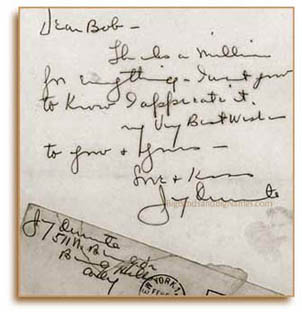 Dear Bob -
Thanks a million
for everything - I want you
to know I appreciate it.
my Very Best Wishes
to you & yours -
Love & Kisses
Jimmy Durante
bigbandsandbignames.com
Jimmy Durante
511 N. Beverly Dr
Beverly Hills
Calif
NEW YORK